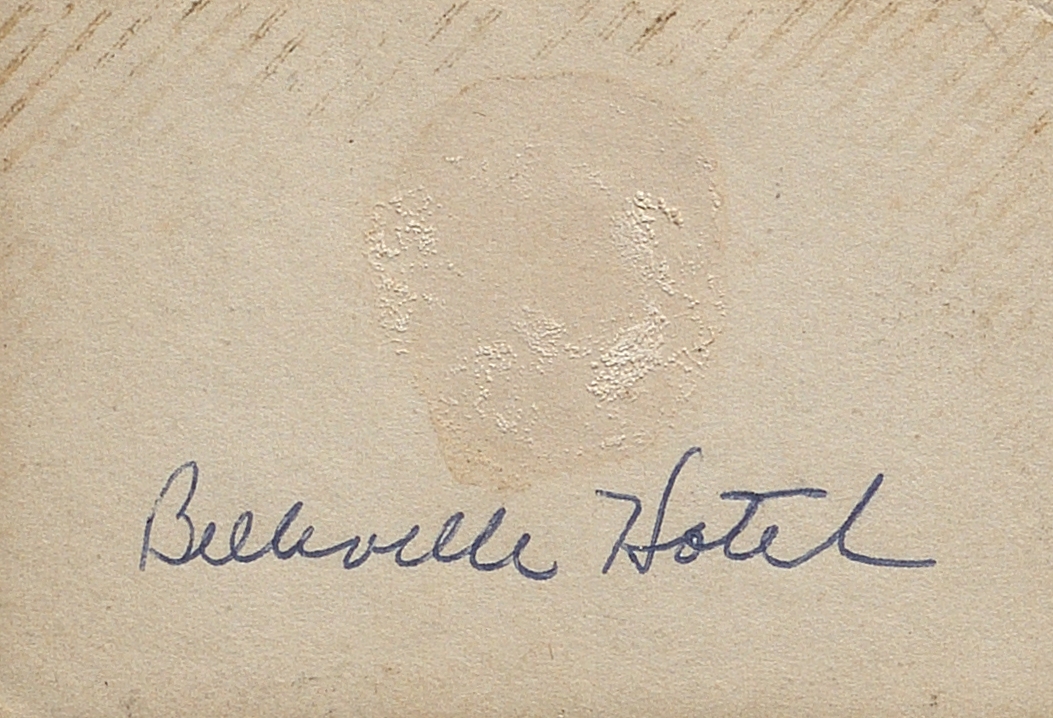 Belleville Hotel